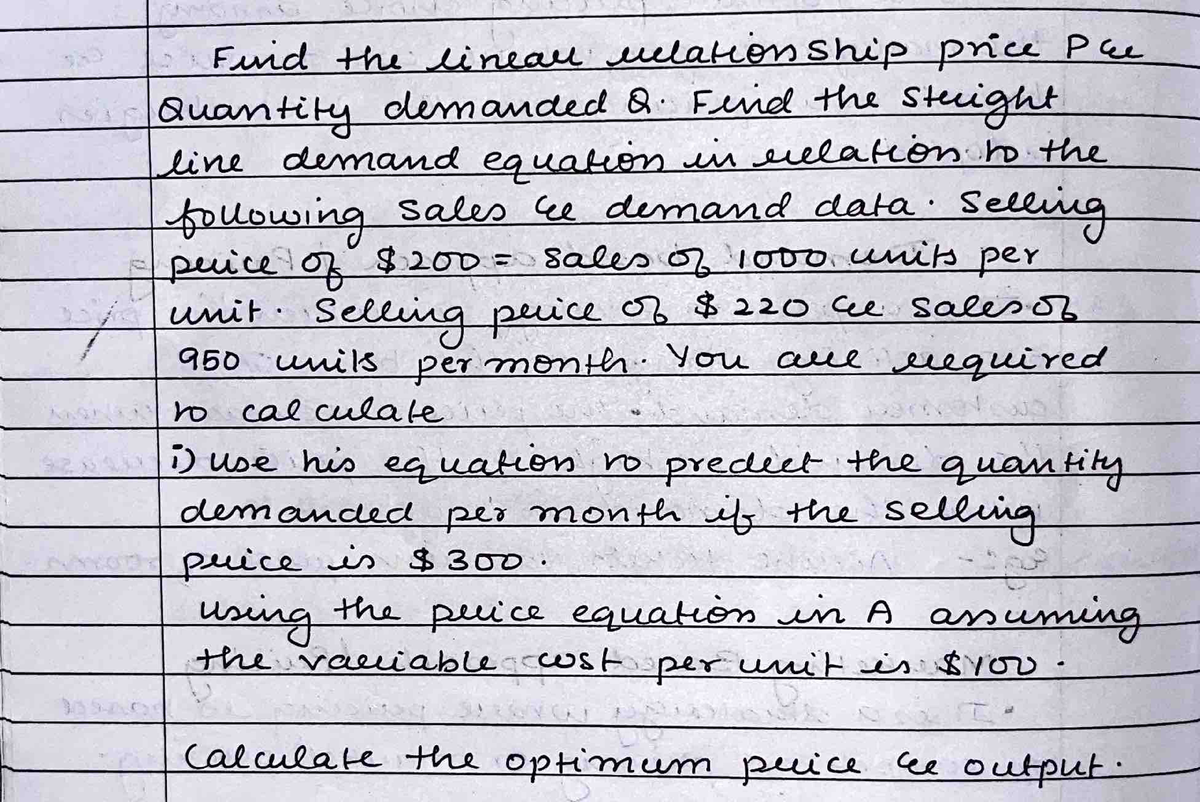 Find the linear relationship price P &
Quantity demanded Q. Find the straight
line demand equation in relation to the
following sales & demand data. Selling
price of $200 = sales of 1000 units per
unit. Selling price of $220 & sales of
950 units per month. You are required
to calculate
i) use his equation to predict the quantity
demanded per month if the selling
price is $300.
using the price equation in A assuming
the variable cost per unit is $100.
Calculate the optimum price & output.